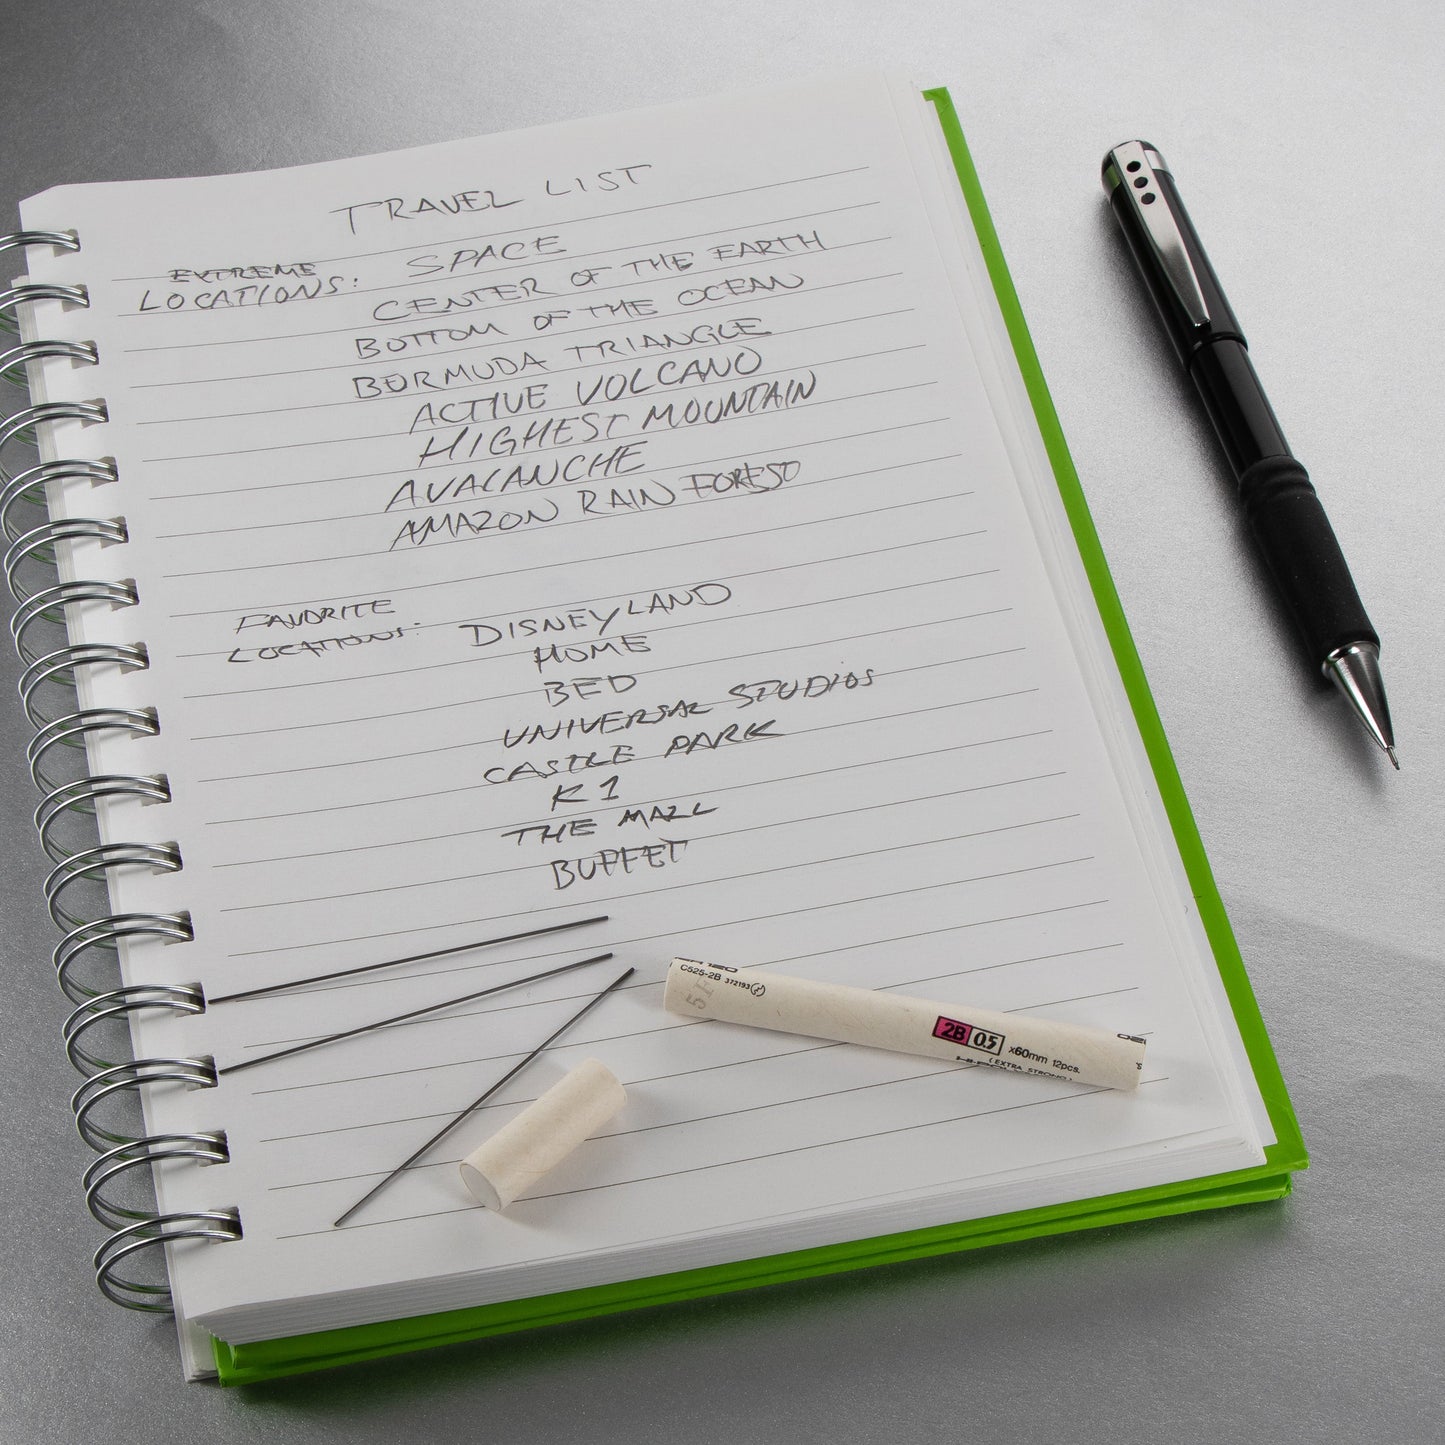 TRAVEL LIST
EXTREME
LOCATIONS: SPACE
CENTER OF THE EARTH
BOTTOM OF THE OCEAN
BERMUDA TRIANGLE
ACTIVE VOLCANO
HIGHEST MOUNTAIN
AVALANCHE
AMAZON RAIN FOREST
FAVORITE
LOCATIONS: DISNEYLAND
HOME
BED
UNIVERSAL STUDIOS
CASTLE PARK
K1
THE MALL
BUFFET
C525-2B 372193
5F
2B 0.5 x60mm 12pcs.
(EXTRA STRONG)